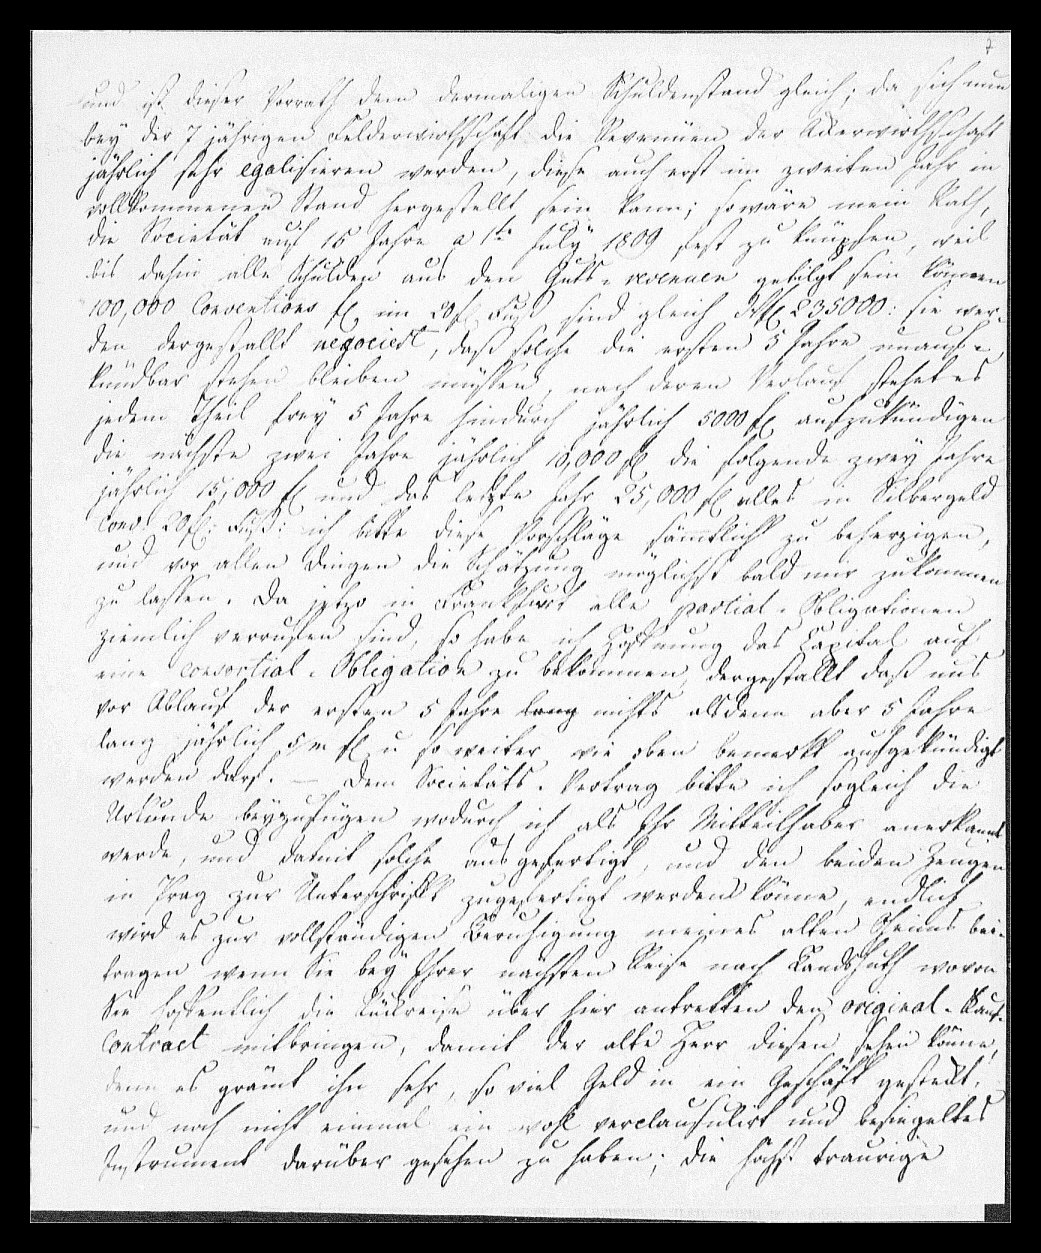 7
und ist dieser Vorrath dem dermaligen Schuldenstand gleich; da sich nun
bey der 7 jährigen Felderwirthschaft die Revenüen der Ackerwirthschaft
jährlich sehr egalisieren werden, diese auch erst im zweiten Jahr in
vollkommenen Stand hergestellt sein kann; so wäre mein Rath,
die Societät auf 15 Jahre a 1te July 1809 fest zu knüpfen, weil
bis dahin alle Schulden aus den Guts-revenuen getilgt sein können
100,000 Conventions fl im 20 fl Fuß sind gleich 235000: sie wer-
den dergestallt negocirt, daß solche die ersten 5 Jahre unauf-
kündbar stehen bleiben müssen, nach deren Verlauf stehet es
jedem Theil frey 5 Jahre hindurch jährlich 5000 fl aufzukündigen
die nächste zwei Jahre jährlich 10,000 fl die folgende zwey Jahre
jährlich 15,000 fl und das letzte Jahr 25,000 fl alles in Silbergeld
Conv. 20 fl: Fuß: ich bitte diese Vorschläge sämtlich zu beherzigen,
und vor allen Dingen die Schätzung möglichst bald mir zukommen
zu lassen. Da jetzo in Frankfurt alle partial-Obligationen
ziemlich verrufen sind, so habe ich Hoffnung das Capital auf
eine consortial-Obligation zu bekommen, dergestallt daß uns
vor Ablauf der ersten 5 Jahre lang nichts alsdenn aber 5 Jahre
lang jährlich 5 m fl u so weiter wie oben bemerkt aufgekündigt
werden darf. — Dem Societäts-Vertrag bitte ich sogleich die
Urkunde beyzufügen wodurch ich als Ihr Mittheilhaber anerkannt
werde, und damit solche ausgefertigt, und den beiden Zeugen
in Prag zur Unterschrift zugefertigt werden könne, endlich
wird es zur vollständigen Beruhigung meines alten Oheims bei-
tragen wenn Sie bey Ihrer nächsten Reise nach Landshuth wovon
Sie hoffentlich die Rückreise über hier antretten den original-Kauf-
Contract mitbringen, damit der alte Herr diesen sehen könne,
denn es grämt ihn sehr, so viel Geld in ein Geschäft gesteckt,
und noch nicht einmal ein wohl verclausulirt und besiegeltes
Instrument darüber gesehen zu haben; die höchst traurige